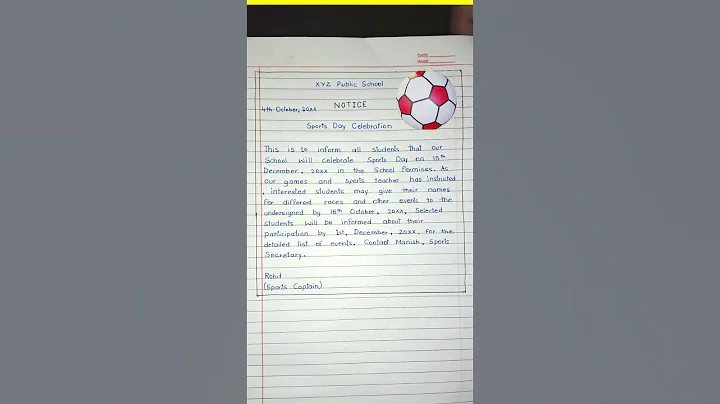 DATE
PAGE
XYZ Public School
NOTICE
4th October, 20xx
Sports Day Celebration
This is to inform all students that our
School will celebrate Sports Day on 15th
December, 20xx in the School Permises. As
our games and sports teacher has instructed
, interested students may give their names
For differed races and other events to the
undersigned by 15th October, 20xx, Selected
students will be informed about their
participation by 1st, December, 20xx. For the
detailed list of events. Contact Manish, Sports
Secretary.
Rohit
(Sports Captain)